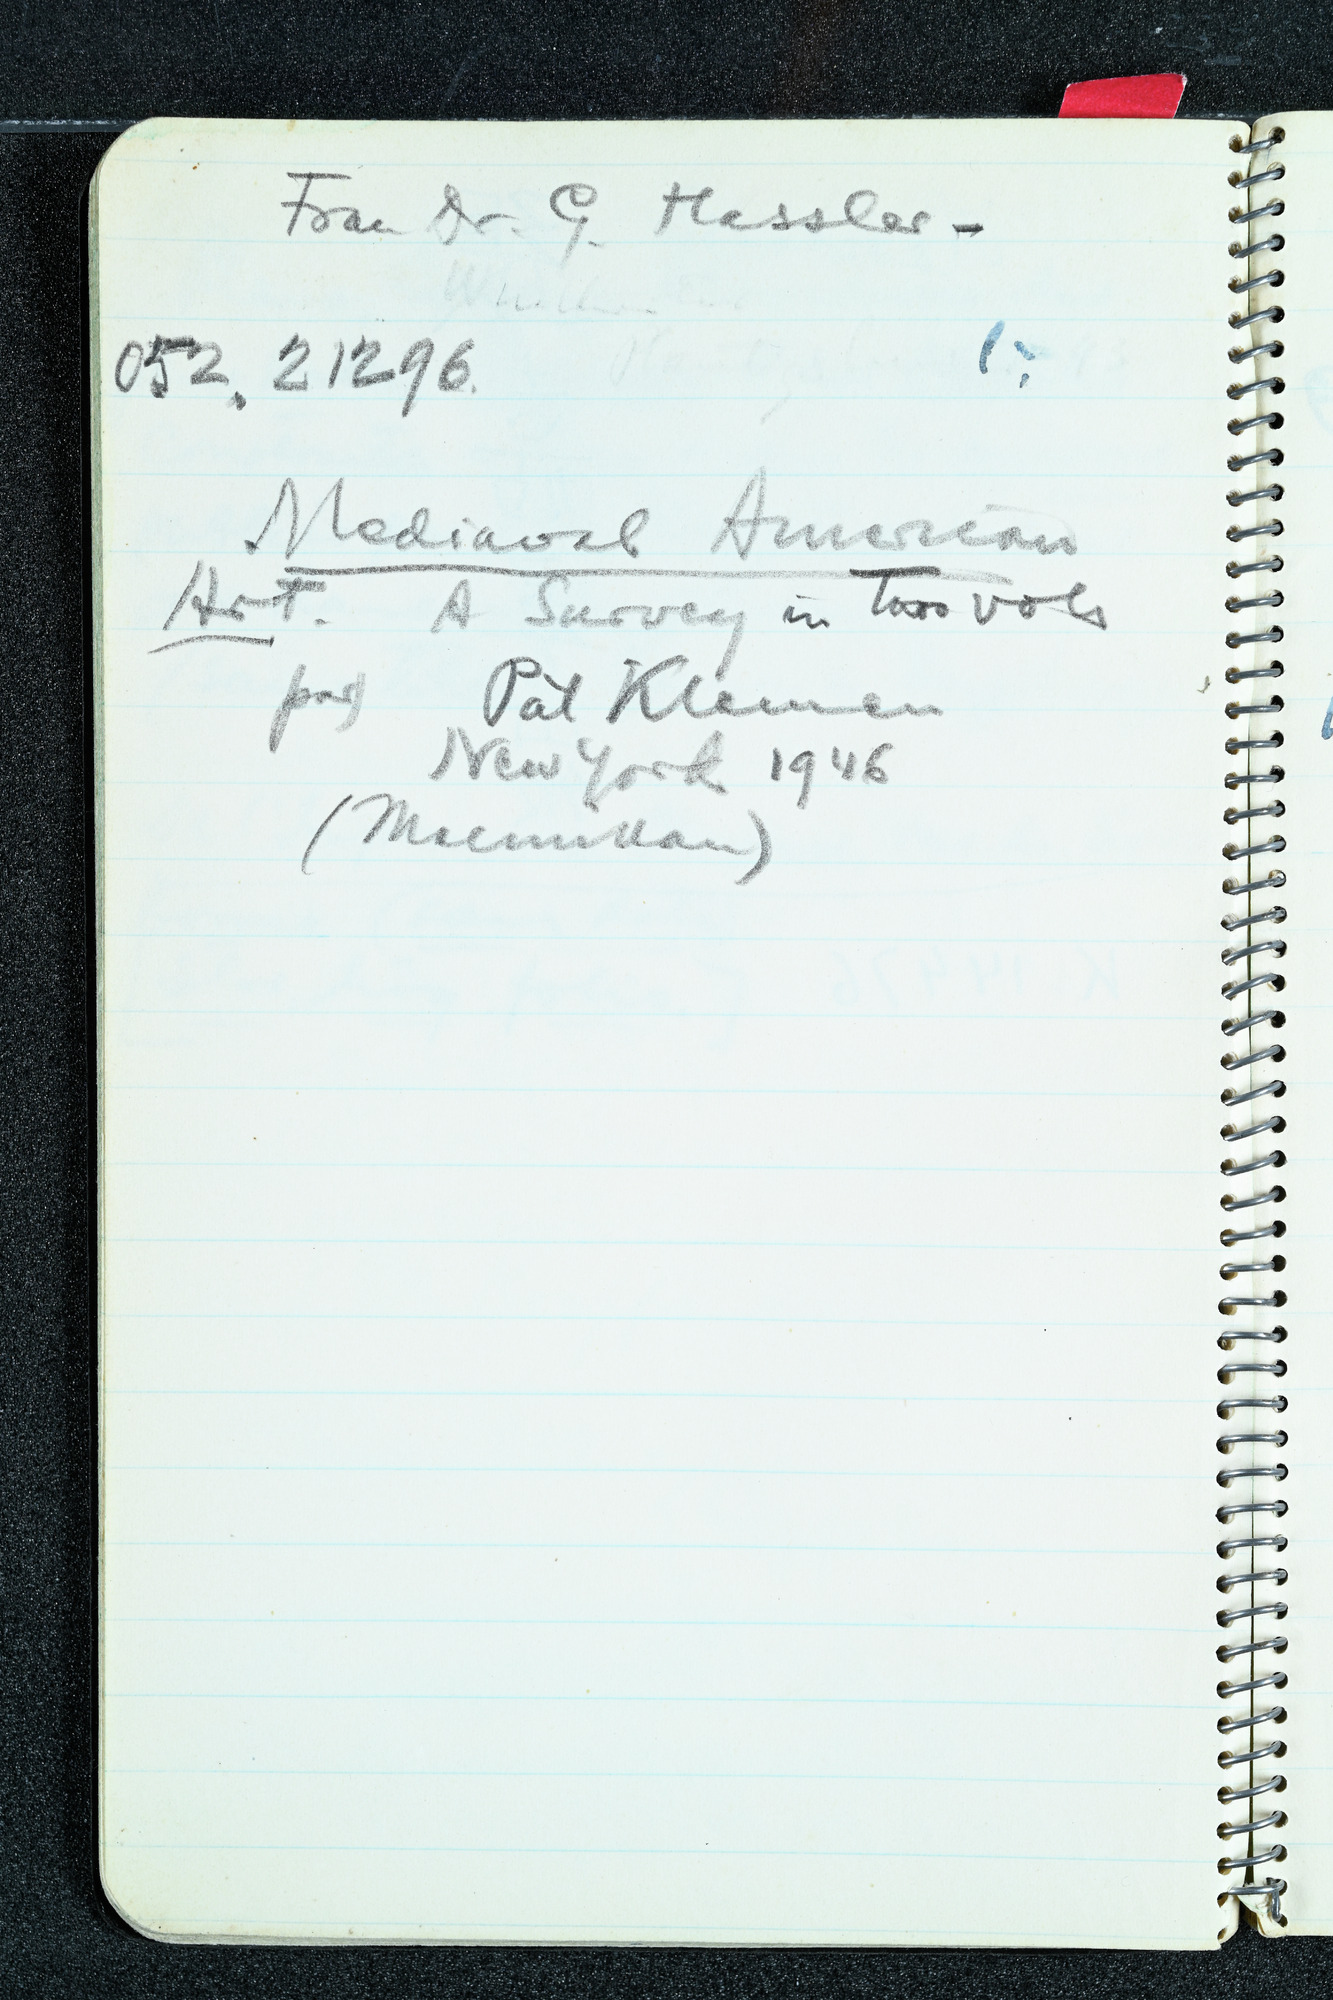 Frau Dr. G. Hassler -
052. 21296.
Mediaval American
Art. A Survey in two vols
por Pál Kelemen
New York 1946
(Macmillan)